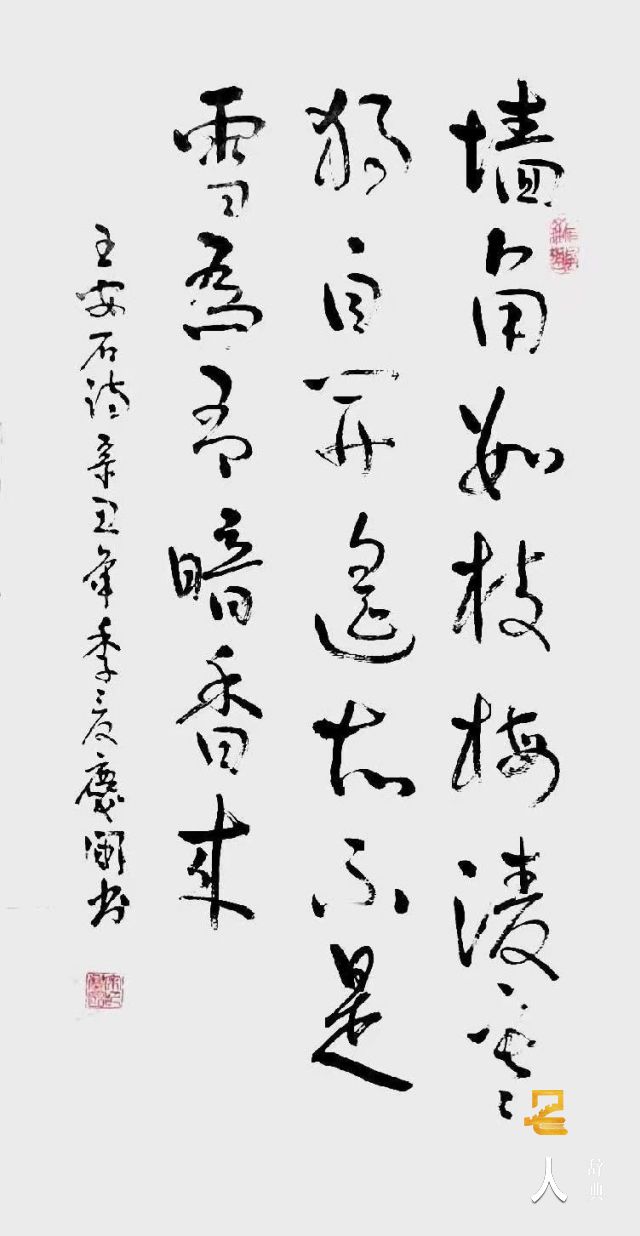 墙角数枝梅凌寒
独自开遥知不是
雪为有暗香来
王安石诗辛丑年季夏慶國书
人
辞典